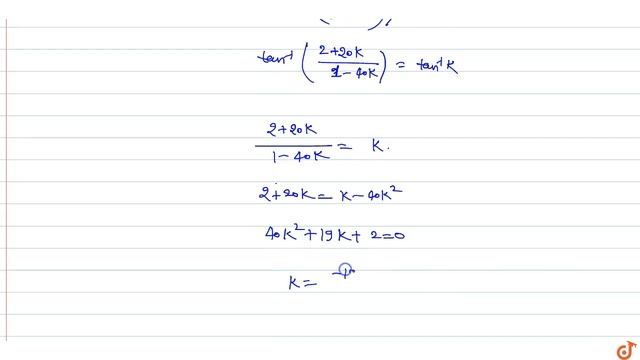 tan⁻¹ ( 2+20K / 1-40K ) = tan⁻¹ K
2+20K / 1-40K = K.
2+20K = K-40K²
40K²+19K+2=0
K=